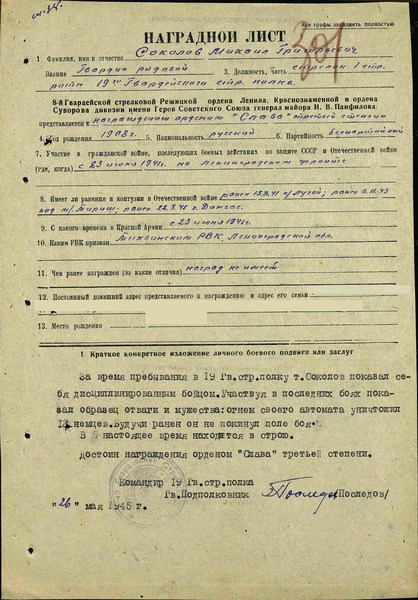 все графы заполнить полностью
НАГРАДНОЙ ЛИСТ
301
1. Фамилия, имя и отчество Соколов Михаил Григорьевич
Звание Гвардии рядовой 3. Должность, часть стрелок 1 стр.
роты 19го Гвардейского стр. полка
8-й Гвардейской стрелковой Режицкой ордена Ленина, Краснознаменной и ордена
Суворова дивизии имени Героя Советского Союза генерал майора И. В. Панфилова.
представляется к награждению орденом "Слава" третьей степени
4. Год рождения 1908 г. 5. Национальность русский 6. Партийность беспартийный
7. Участие в гражданской войне, последующих боевых действиях по защите СССР и Отечественной войне
(где, когда) с 23 июня 1941г. на Ленинградском фронте
8. Имеет ли ранения и контузии в Отечественной войне ранен 15.8.41 п/Лугой; ранен 6.11.43
под Кириши; ранен
9. С какого времени в Красной Армии с 23 июня 1941г.
10. Каким РВК призван Тихвинским РВК, Ленинградской обл.
11. Чем ранее награжден (за какие отличия) наград не имеет
12. Постоянный домашний адрес представляемого к награждению и адрес его семьи
13. Место рождения
1. Краткое конкретное изложение личного боевого подвига или заслуг
За время пребывания в 19 Гв.стр.полку т.Соколов показал се-
бя дисциплинированным бойцом.Участвуя в последних боях пока-
зал образец отваги и мужества:огнем своего автомата уничтожил
немцев.Будучи ранен он не покинул поле боя.
В настоящее время находится в строю.
достоин награждения орденом "Слава" третьей степени.
Командир 19 Гв.стр.полка
Гв.Подполковник Последов /Последов/
"26" мая 1945 г.